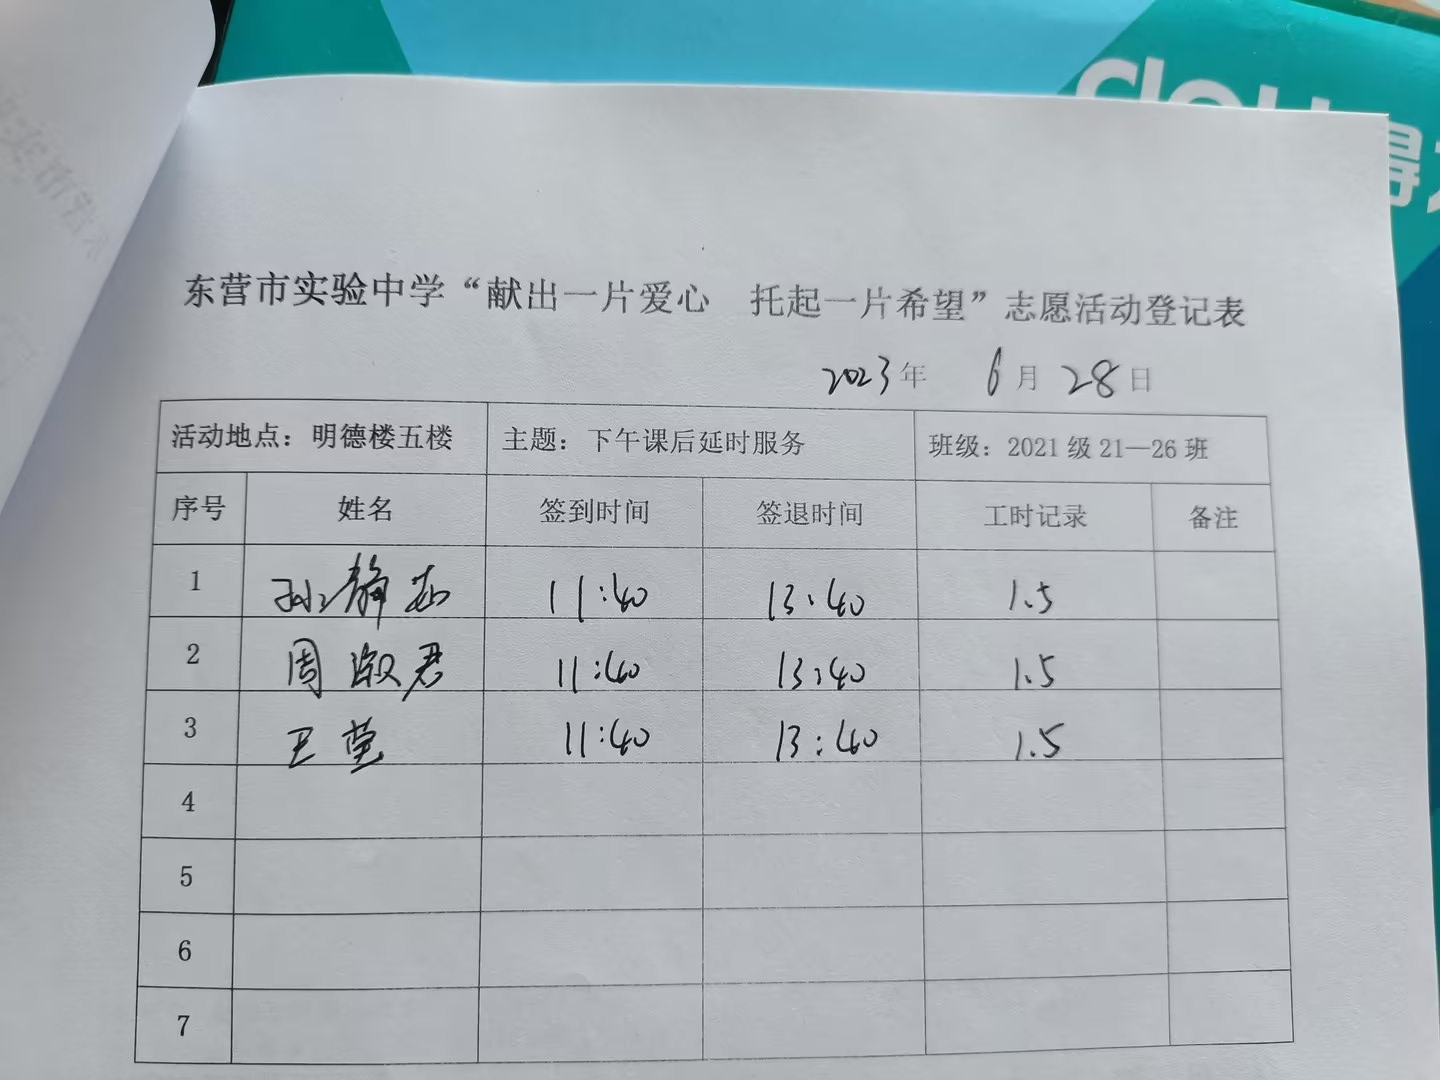 得
东营市实验中学“献出一片爱心 托起一片希望”志愿活动登记表
2023年 6月28日
活动地点：明德楼五楼 主题：下午课后延时服务 班级：2021级21—26班
序号 姓名 签到时间 签退时间 工时记录 备注
1 孙静茹 11:40 13:40 1.5
2 周淑君 11:40 13:40 1.5
3 王莹 11:40 13:40 1.5
4
5
6
7